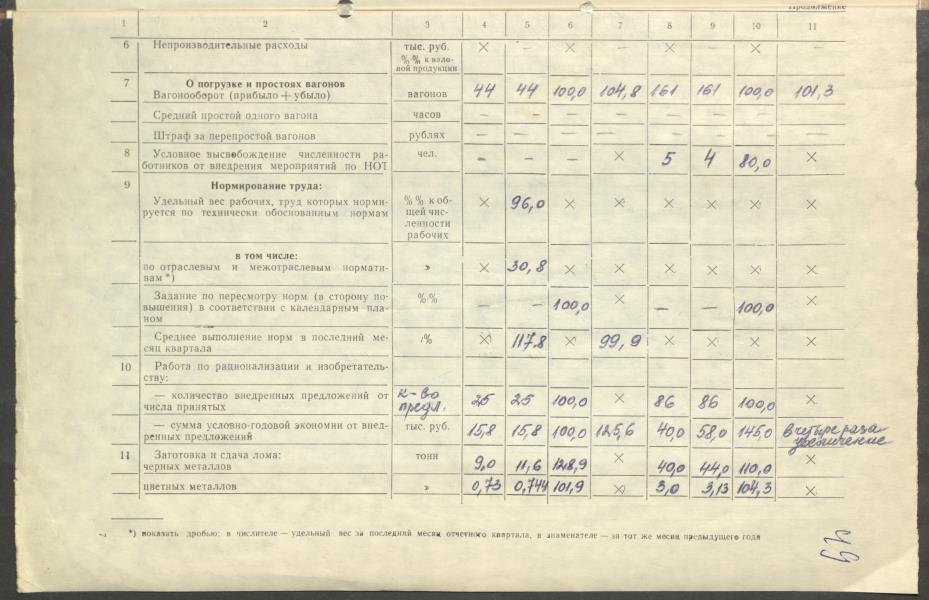 Продолжение
1 2 3 4 5 6 7 8 9 10 11
6 Непроизводительные расходы тыс. руб. × — × — × — × —
%% к вало-
вой продукции
7 О погрузке и простоях вагонов
Вагонооборот (прибыло + убыло) вагонов 44 44 100,0 104,8 161 161 100,0 101,3
Средний простой одного вагона часов — — — — — — — —
Штраф за перепростой вагонов рублях — — — — — — — —
8 Условное высвобождение численности ра- чел. — — — × 5 4 80,0 ×
ботников от внедрения мероприятий по НОТ
9 Нормирование труда:
Удельный вес рабочих, труд которых норми- %% к об- × 96,0 × × × × × ×
руется по технически обоснованным нормам щей чис-
ленности
рабочих
в том числе:
по отраслевым и межотраслевым нормати- » × 30,8 × × × × × ×
вам *)
Задание по пересмотру норм (в сторону по- %% — — 100,0 × — — 100,0 ×
вышения) в соответствии с календарным пла-
ном
Среднее выполнение норм в последний ме- % × 117,8 × 99,9 × × × ×
сяц квартала
10 Работа по рационализации и изобретатель-
ству:
— количество внедренных предложений от к-во 25 25 100,0 × 86 86 100,0 ×
числа принятых предл.
— сумма условно-годовой экономии от внед- тыс. руб. 15,8 15,8 100,0 125,6 40,0 58,0 145,0 в четыре раза
ренных предложений увеличение
11 Заготовка и сдача лома: тонн
черных металлов 9,0 11,6 128,9 × 40,0 44,0 110,0 ×
цветных металлов » 0,73 0,744 101,9 × 3,0 3,13 104,3 ×
*) показать дробью: в числителе — удельный вес за последний месяц отчетного квартала, в знаменателе — за тот же месяц предыдущего года
7